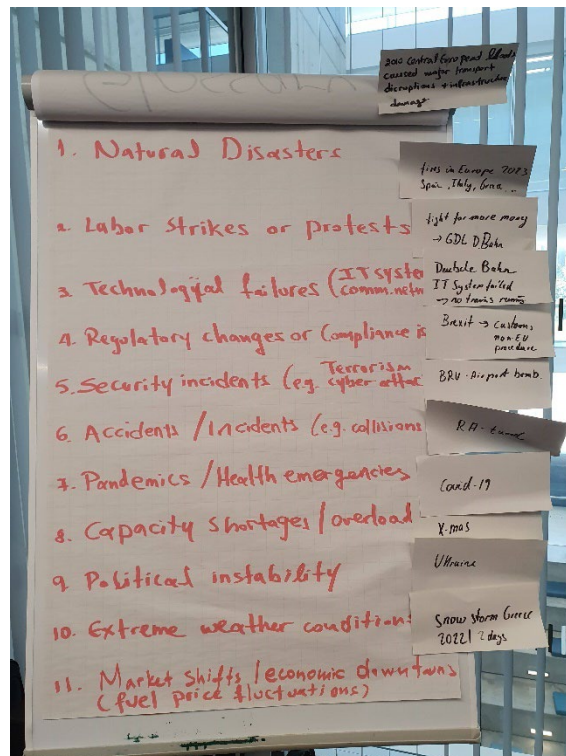 2010 Central European floods
caused major transport
disruptions + infrastructure
damage
1. Natural Disasters
fires in Europe 2023
Spain, Italy, Greece...
2. Labor Strikes or protests
fight for more money
→ GDL DBahn
3. Technological failures (IT syste
comm. netw
Deutsche Bahn
IT System failed
→ no trains running
4. Regulatory changes or Compliance is
Brexit → customs,
non-EU
procedure
5. Security incidents (e.g. Terrorism
cyber attac
BRU - Airport bomb.
6. Accidents / Incidents (e.g. collisions
RA -
7. Pandemics / Health emergencies
Covid-19
8. Capacity shortages / overload
X-mas
9. Political instability
Ukraine
10. Extreme weather condition
Snow storm Greece
2022 | 2 days
11. Market shifts / economic downturns
(fuel price fluctuations)